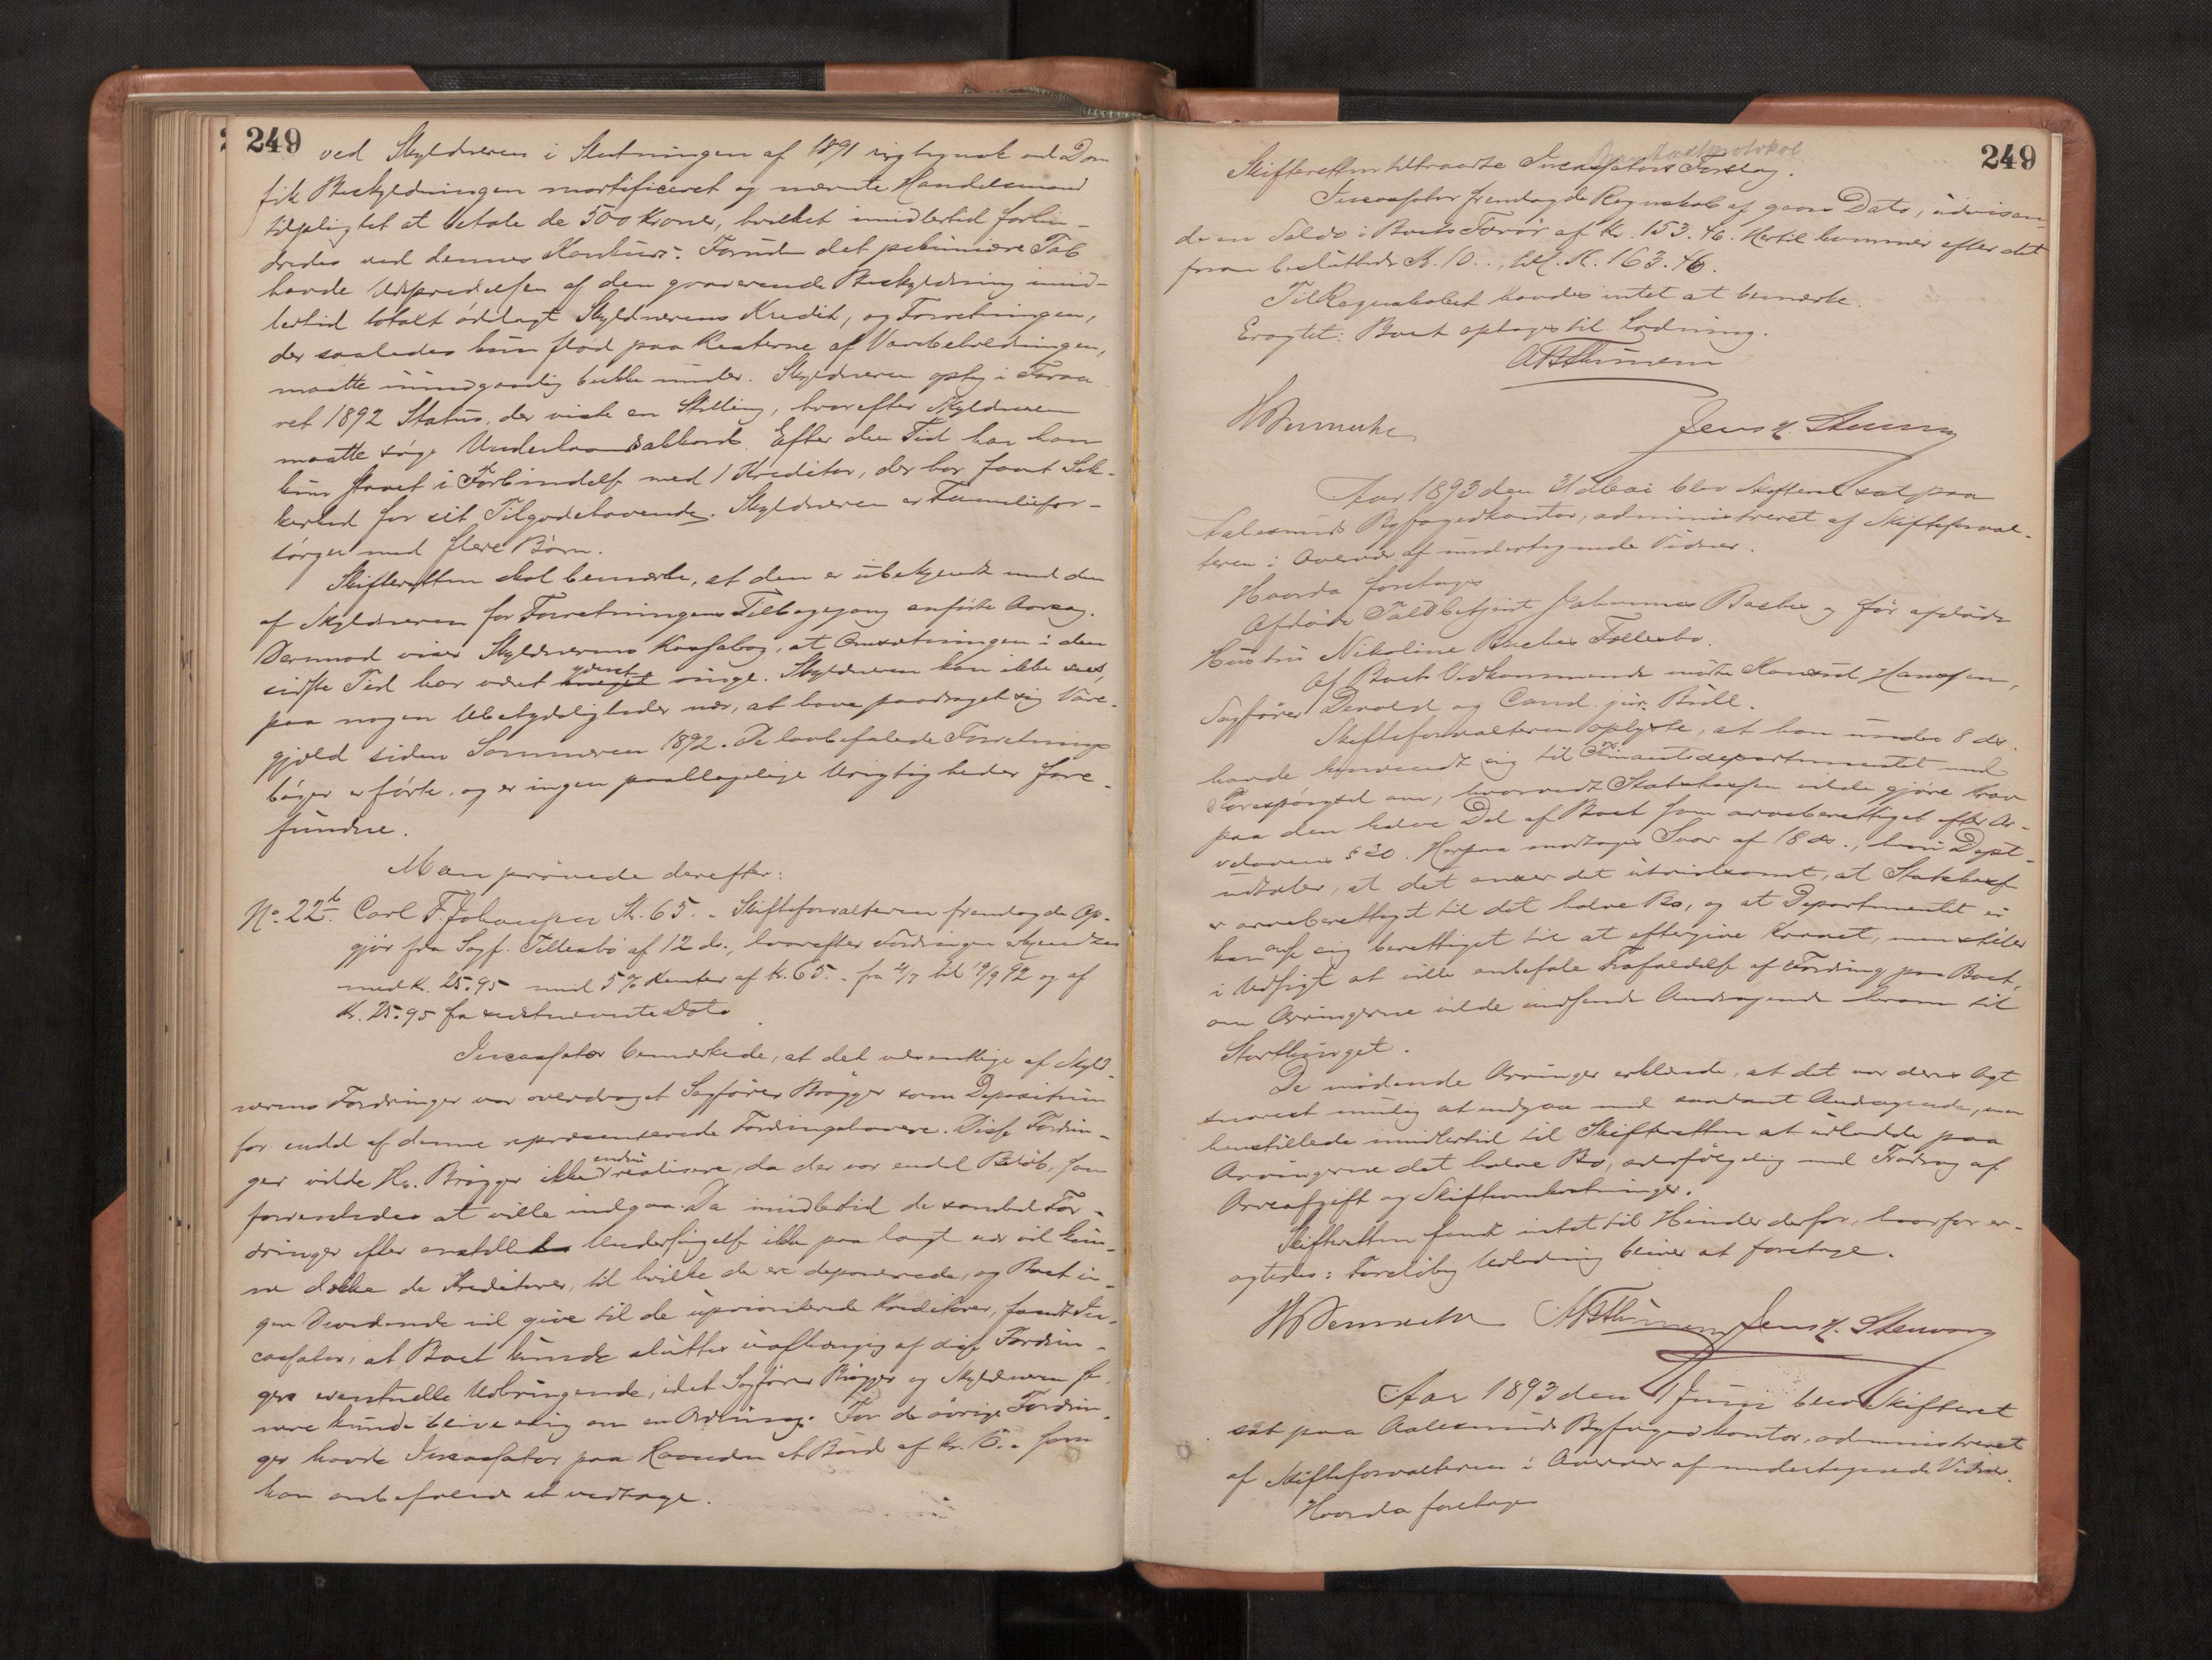 249
ved Skyldneren i Slutningen af 1891 ved Dom
fik Beskyldningen mortificeret og nævnte Handelsmand
tilpligtet at betale de 500 Kroner, hvilket imidlertid forhin-
dredes ved dennes Konkurs. Foruden det pekuniære Tab
havde Udspredelsen af den graverende Beskyldning imid-
lertid totalt ödelagt Skyldnerens Kredit, og Forretningen,
der saaledes kun flöd paa Resterne af Varebeholdningen,
maatte uundgaaelig bukke under. Skyldneren optog i Foraa-
ret 1892 Status, der viste en Stilling, hvorefter Skyldneren
maatte söge Underhaandsakkord. Efter den Tid har han
kun staaet i Forbindelse med 1 Kreditor, der har faaet Sik-
kerhed for sit Tilgodehavende. Skyldneren er Familiefor-
sörger med flere Börn.
Skifteretten skal bemærke, at den er ubekjendt med den
af Skyldneren for Forretningens Tilbagegang anförte Aarsag.
Derimod viser Skyldnerens Kassabog, at Omsætningen i den
sidste Tid har været meget yderst ringe. Skyldneren kan ikke sees,
paa nogen Ubetydeligheder nær, at have paadraget sig Vare-
gjæld siden Sommeren 1892. De lovbefalede Forretnings-
böger er förte, og er ingen paaklagelige Urigtigheder fore-
fundne.
Man prövede derefter:
No. 22b. Carl F. Johansen Kr. 65. - Skifteforvalteren fremlagde Op-
gjör fra Sagf. Tillesbö af 12 ds., hvorefter Fordringen erkjendtes
med K. 25.95 med 5% Renter af Kr. 65. - fra 4/7 til 19/9 92 og af
Kr. 25.95 fra sidstnævnte Dato.
Incassator bemærkede, at det væsentlige af Skyld-
nerens Fordringer var overdraget Sagförer Brögger som Depositum
for endel af denne repræsenterede Fordringshavere. Disse Fordrin-
ger vilde Hr. Brögger ikke endnu realisere, da der var endel Belöb, som
forventedes at ville indgaa. Da imidlertid de samlede For-
dringer efter anstillet Undersögelse ikke paa langt nær vil kun-
ne dække de Kreditorer, til hvilke de er deponerede, og Boet in-
gen Dividende vil give til de uprioriterede Kreditorer, fandt In-
cassator, at Boet kunde sluttes uafhængig af disse Fordrin-
gers eventuelle Udbringende, idet Sagförer Brögger og Skyldneren se-
nere kunde blive enig om en Ordning. For de övrige Fordrin-
ger havde Incassator paa Haanden et Bud af Kr. 10. - som
han anbefalede at vedtage.
249
Skifteretten tiltraadte Incassators Forslag.
Incassator fremlagde Regnskab af gaars Dato, udvisen-
de en Saldo i Boets Favör af Kr. 153.46. Hertil kommer efter det
foran besluttede K. 10.., tils. K. 163.46.
Til Regnskabet havdes intet at bemærke.
Eragtet: Boet optages til Lodning.
Jens K. Stenvaag
Aar 1893 den 31 Mai blev Skifteret sat paa
Aalesunds Byfogedkontor, administreret af Skifteforval-
teren i Overvær af undertegnede Vidner.
Hvorda foretoges
Afdöde Toldbetjent Johannes Backes og för afdöde
Hustru Nikoline Backes Fællesbo.
Af Boets Vedkommende mötte Konsul Hansen,
Sagförer Devold og Cand. jur. Bull.
Skifteforvalteren oplyste, at han under 8 ds.
havde henvendt sig til Finantsdepartementet med
Forespörgsel om, hvorvidt Statskassen vilde gjöre Krav
paa den halve Del af Boet som arveberettiget efter Ar-
velovens § 30. Herpaa modtoges Svar af 18 ds., hvori Dept.
udtaler, at det anser det utvivlsomt, at Statskassen
er arveberettiget til det halve Bo, og at Departementet ei
kan anse sig berettiget til at eftergive Kravet, men stiller
i Udsigt at ville anbefale Frafaldelse af Fordring paa Boet,
om Arvingerne vilde indsende Andragende herom til
Storthinget.
De mödende Arvinger erklærede, at det var deres Agt
snarest mulig at indgaa med saadant Andragende, men
henstillede imidlertid til Skifteretten at udlodde paa
Arvingerne det halve Bo, selvfölgelig med Fradrag af
Arveafgift og Skifteomkostninger.
Skifteretten fandt intet til Hinder derfor, hvorfor er-
agtedes: Forelöbig Udlodning bliver at foretage.
Jens K. Stenvaag
Aar 1893 den 1 Juni blev Skifteret
sat paa Aalesunds Byfogedkontor, administreret
af Skifteforvalteren i Overvær af undertegnede Vidner.
Hvorda foretoges